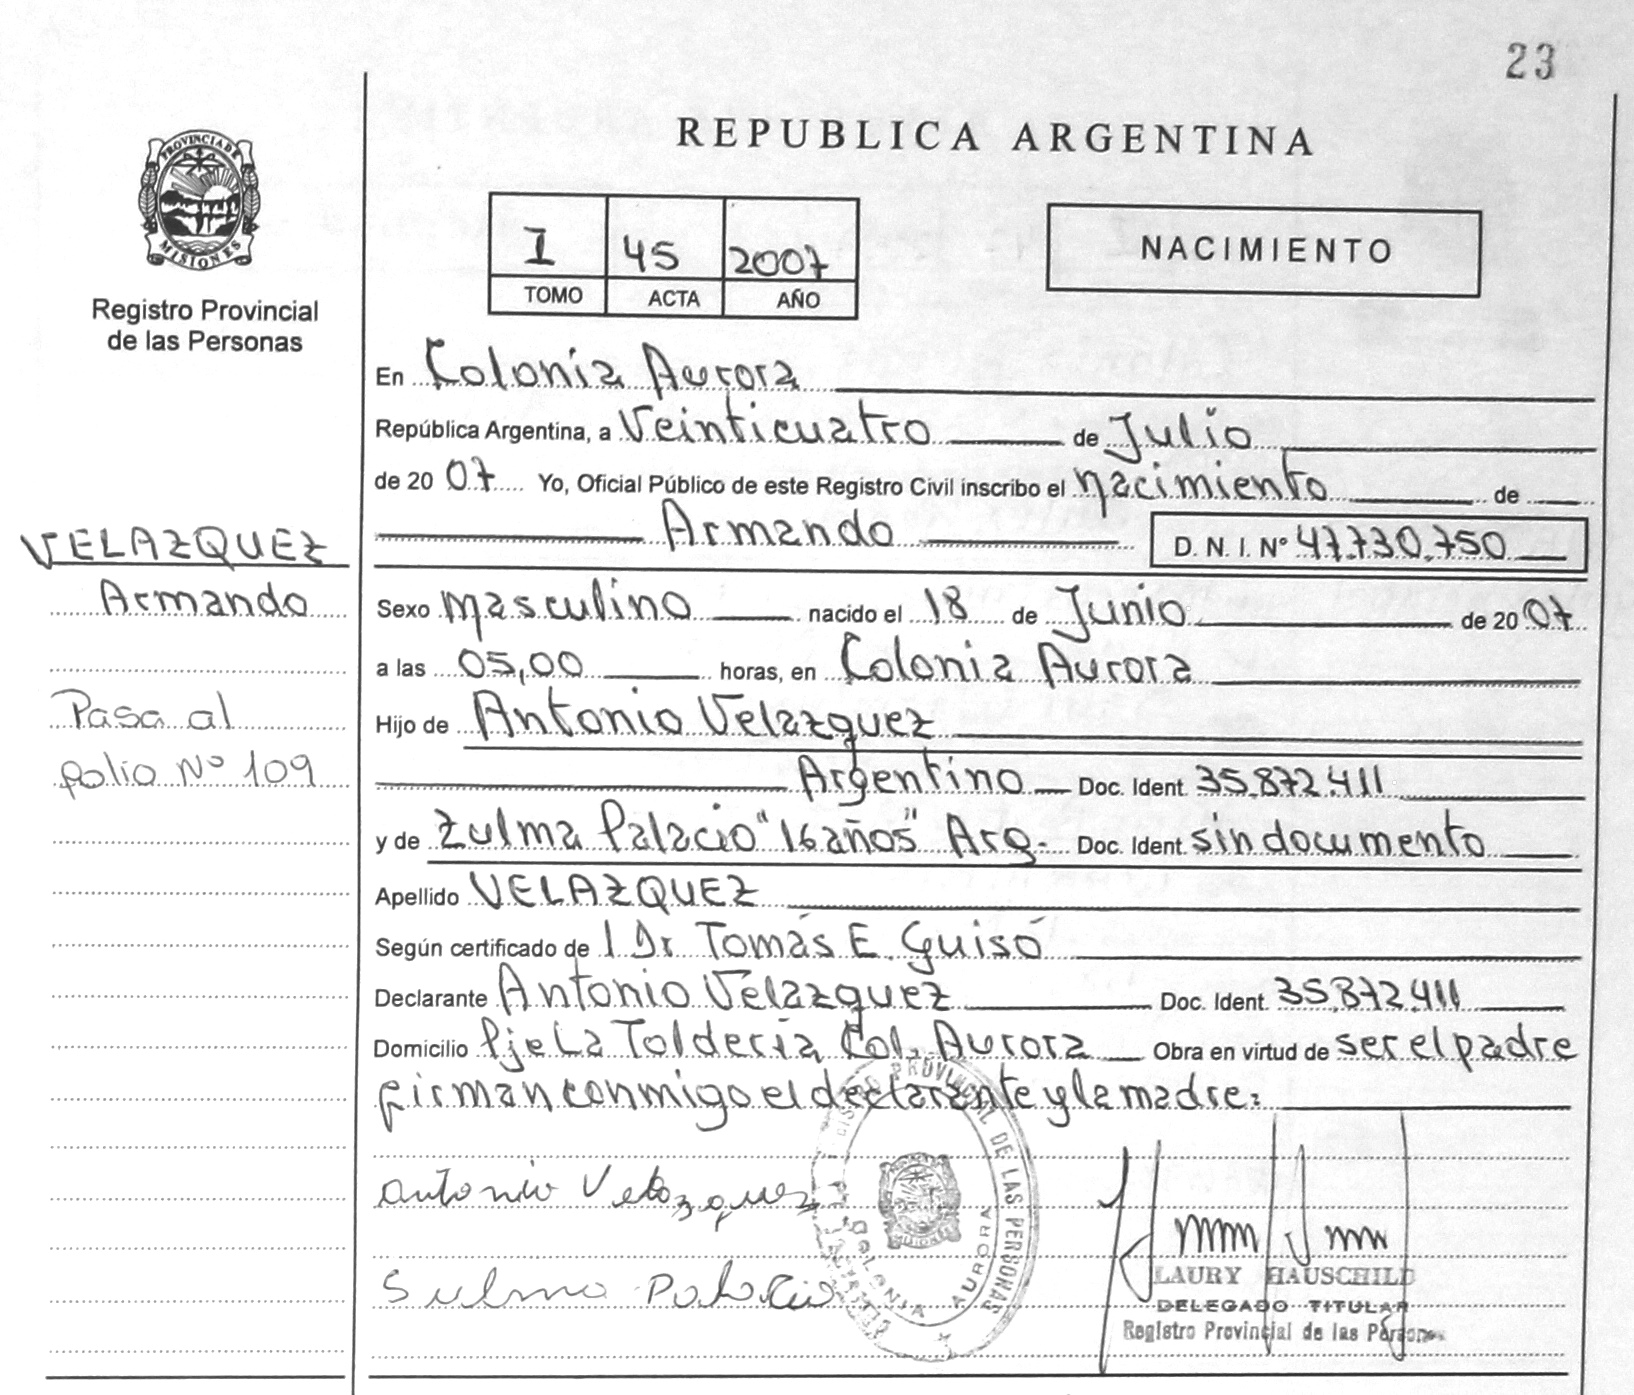 23
PROVINCIA DE
MISIONES
Registro Provincial
de las Personas
REPUBLICA ARGENTINA
I 45 2007
TOMO ACTA AÑO
NACIMIENTO
En Colonia Aurora
República Argentina, a Veinticuatro de Julio
de 2007 Yo, Oficial Público de este Registro Civil inscribo el nacimiento de
Armando D. N. I. Nº 47.730.750
VELAZQUEZ
Armando
Pasa al
folio Nº 109
Sexo masculino nacido el 18 de Junio de 2007
a las 05,00 horas, en Colonia Aurora
Hijo de Antonio Velazquez
Argentino Doc. Ident. 35.872.411
y de Zulma Palacio "16 años" Arg. Doc. Ident. sin documento
Apellido VELAZQUEZ
Según certificado de 1 Dr Tomás E. Guisó
Declarante Antonio Velazquez Doc. Ident. 35.872.411
Domicilio Pje La Toldería Col. Aurora Obra en virtud de ser el padre
firman conmigo el declarante y la madre:
Antonio Velazquez
Sulma Palacio
PROVINCIAL DE LAS PERSONAS
COLONIA AURORA
LAURY HAUSCHILD
DELEGADO TITULAR
Registro Provincial de las Personas